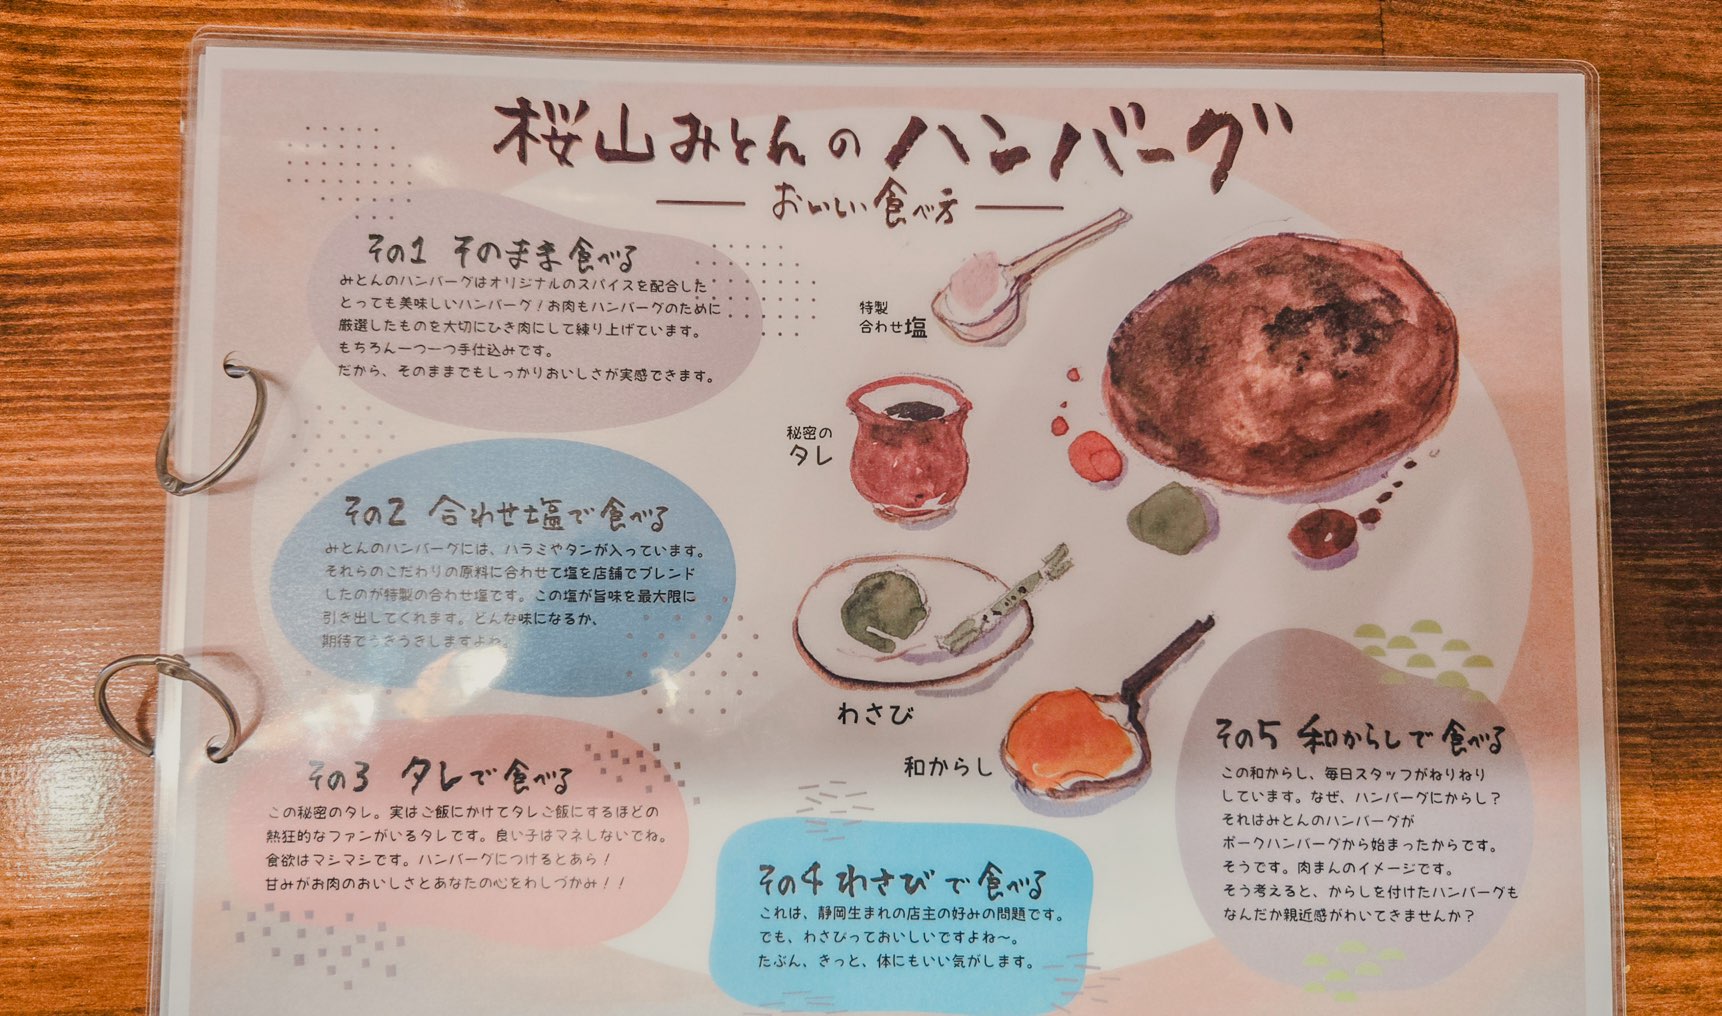 桜山みとんのハンバーグ
おいしい食べ方
その1 そのまま食べる
みとんのハンバーグはオリジナルのスパイスを配合した
とっても美味しいハンバーグ！お肉もハンバーグのために
厳選したものを大切にひき肉にして練り上げています。
もちろん一つ一つ手仕込みです。
だから、そのままでもしっかりおいしさが実感できます。
特製
合わせ塩
秘密の
タレ
その2 合わせ塩で食べる
みとんのハンバーグには、ハラミやタンが入っています。
それらのこだわりの原料に合わせて塩を店舗でブレンド
したのが特製の合わせ塩です。この塩が旨味を最大限に
引き出してくれます。どんな味になるか、
期待でうきうきしますよね。
わさび
和からし
その3 タレで食べる
この秘密のタレ。実はご飯にかけてタレご飯にするほどの
熱狂的なファンがいるタレです。良い子はマネしないでね。
食欲はマシマシです。ハンバーグにつけるとあら！
甘みがお肉のおいしさとあなたの心をわしづかみ！！
その4 わさびで食べる
これは、静岡生まれの店主の好みの問題です。
でも、わさびっておいしいですよね～。
たぶん、きっと、体にもいい気がします。
その5 和からしで食べる
この和からし、毎日スタッフがねりねり
しています。なぜ、ハンバーグにからし？
それはみとんのハンバーグが
ポークハンバーグから始まったからです。
そうです。肉まんのイメージです。
そう考えると、からしを付けたハンバーグも
なんだか親近感がわいてきませんか？